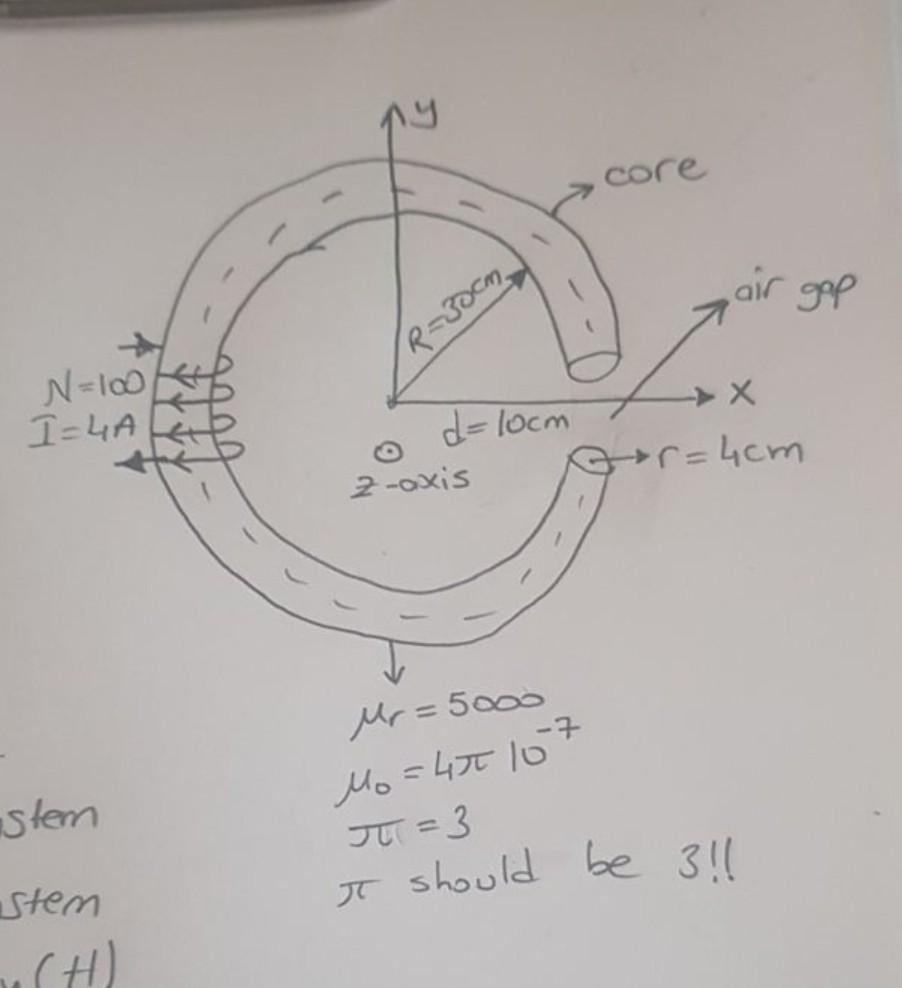 y
core
air gap
R=30cm
N=100
I=4A
x
d=10cm
r=4cm
z-axis
μr=5000
μ₀=4π 10⁻⁷
stem
π=3
π should be 3!!
stem
(H)